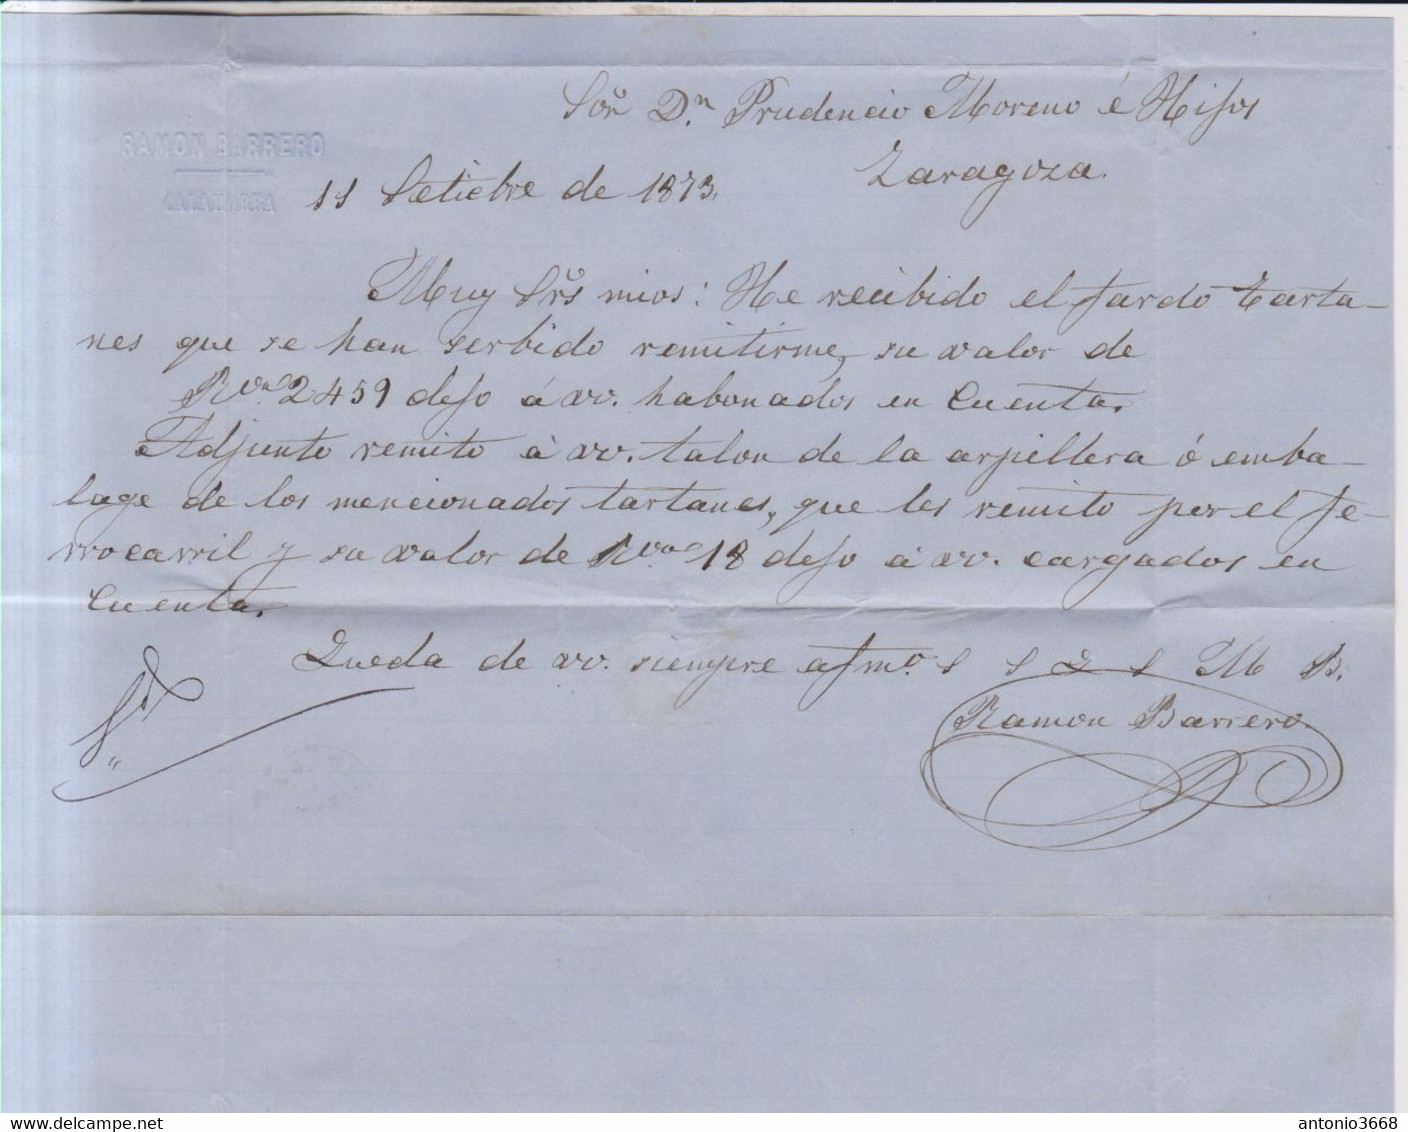 Sor Dn Prudencio Moreno é Hijos
RAMON BARRERO
Zaragoza.
CALAHORRA
11 Setiebre de 1873.
Muy Srs mios: He recibido el fardo tarta-
nes que se han serbido remitirme, su valor de
Rvn 2459 dejo á vv. habonados en Cuenta.
Adjunto remito á vv. talon de la arpillera ó emba-
lage de los mencionados tartanes, que les remito por el fe-
rrocarril y su valor de Rvn 18 dejo á vv. cargados en
Cuenta.
Queda de vv. siempre afmo. S S Q S M B.
Ramon Barrero.
www.delcampe.net
antonio3668